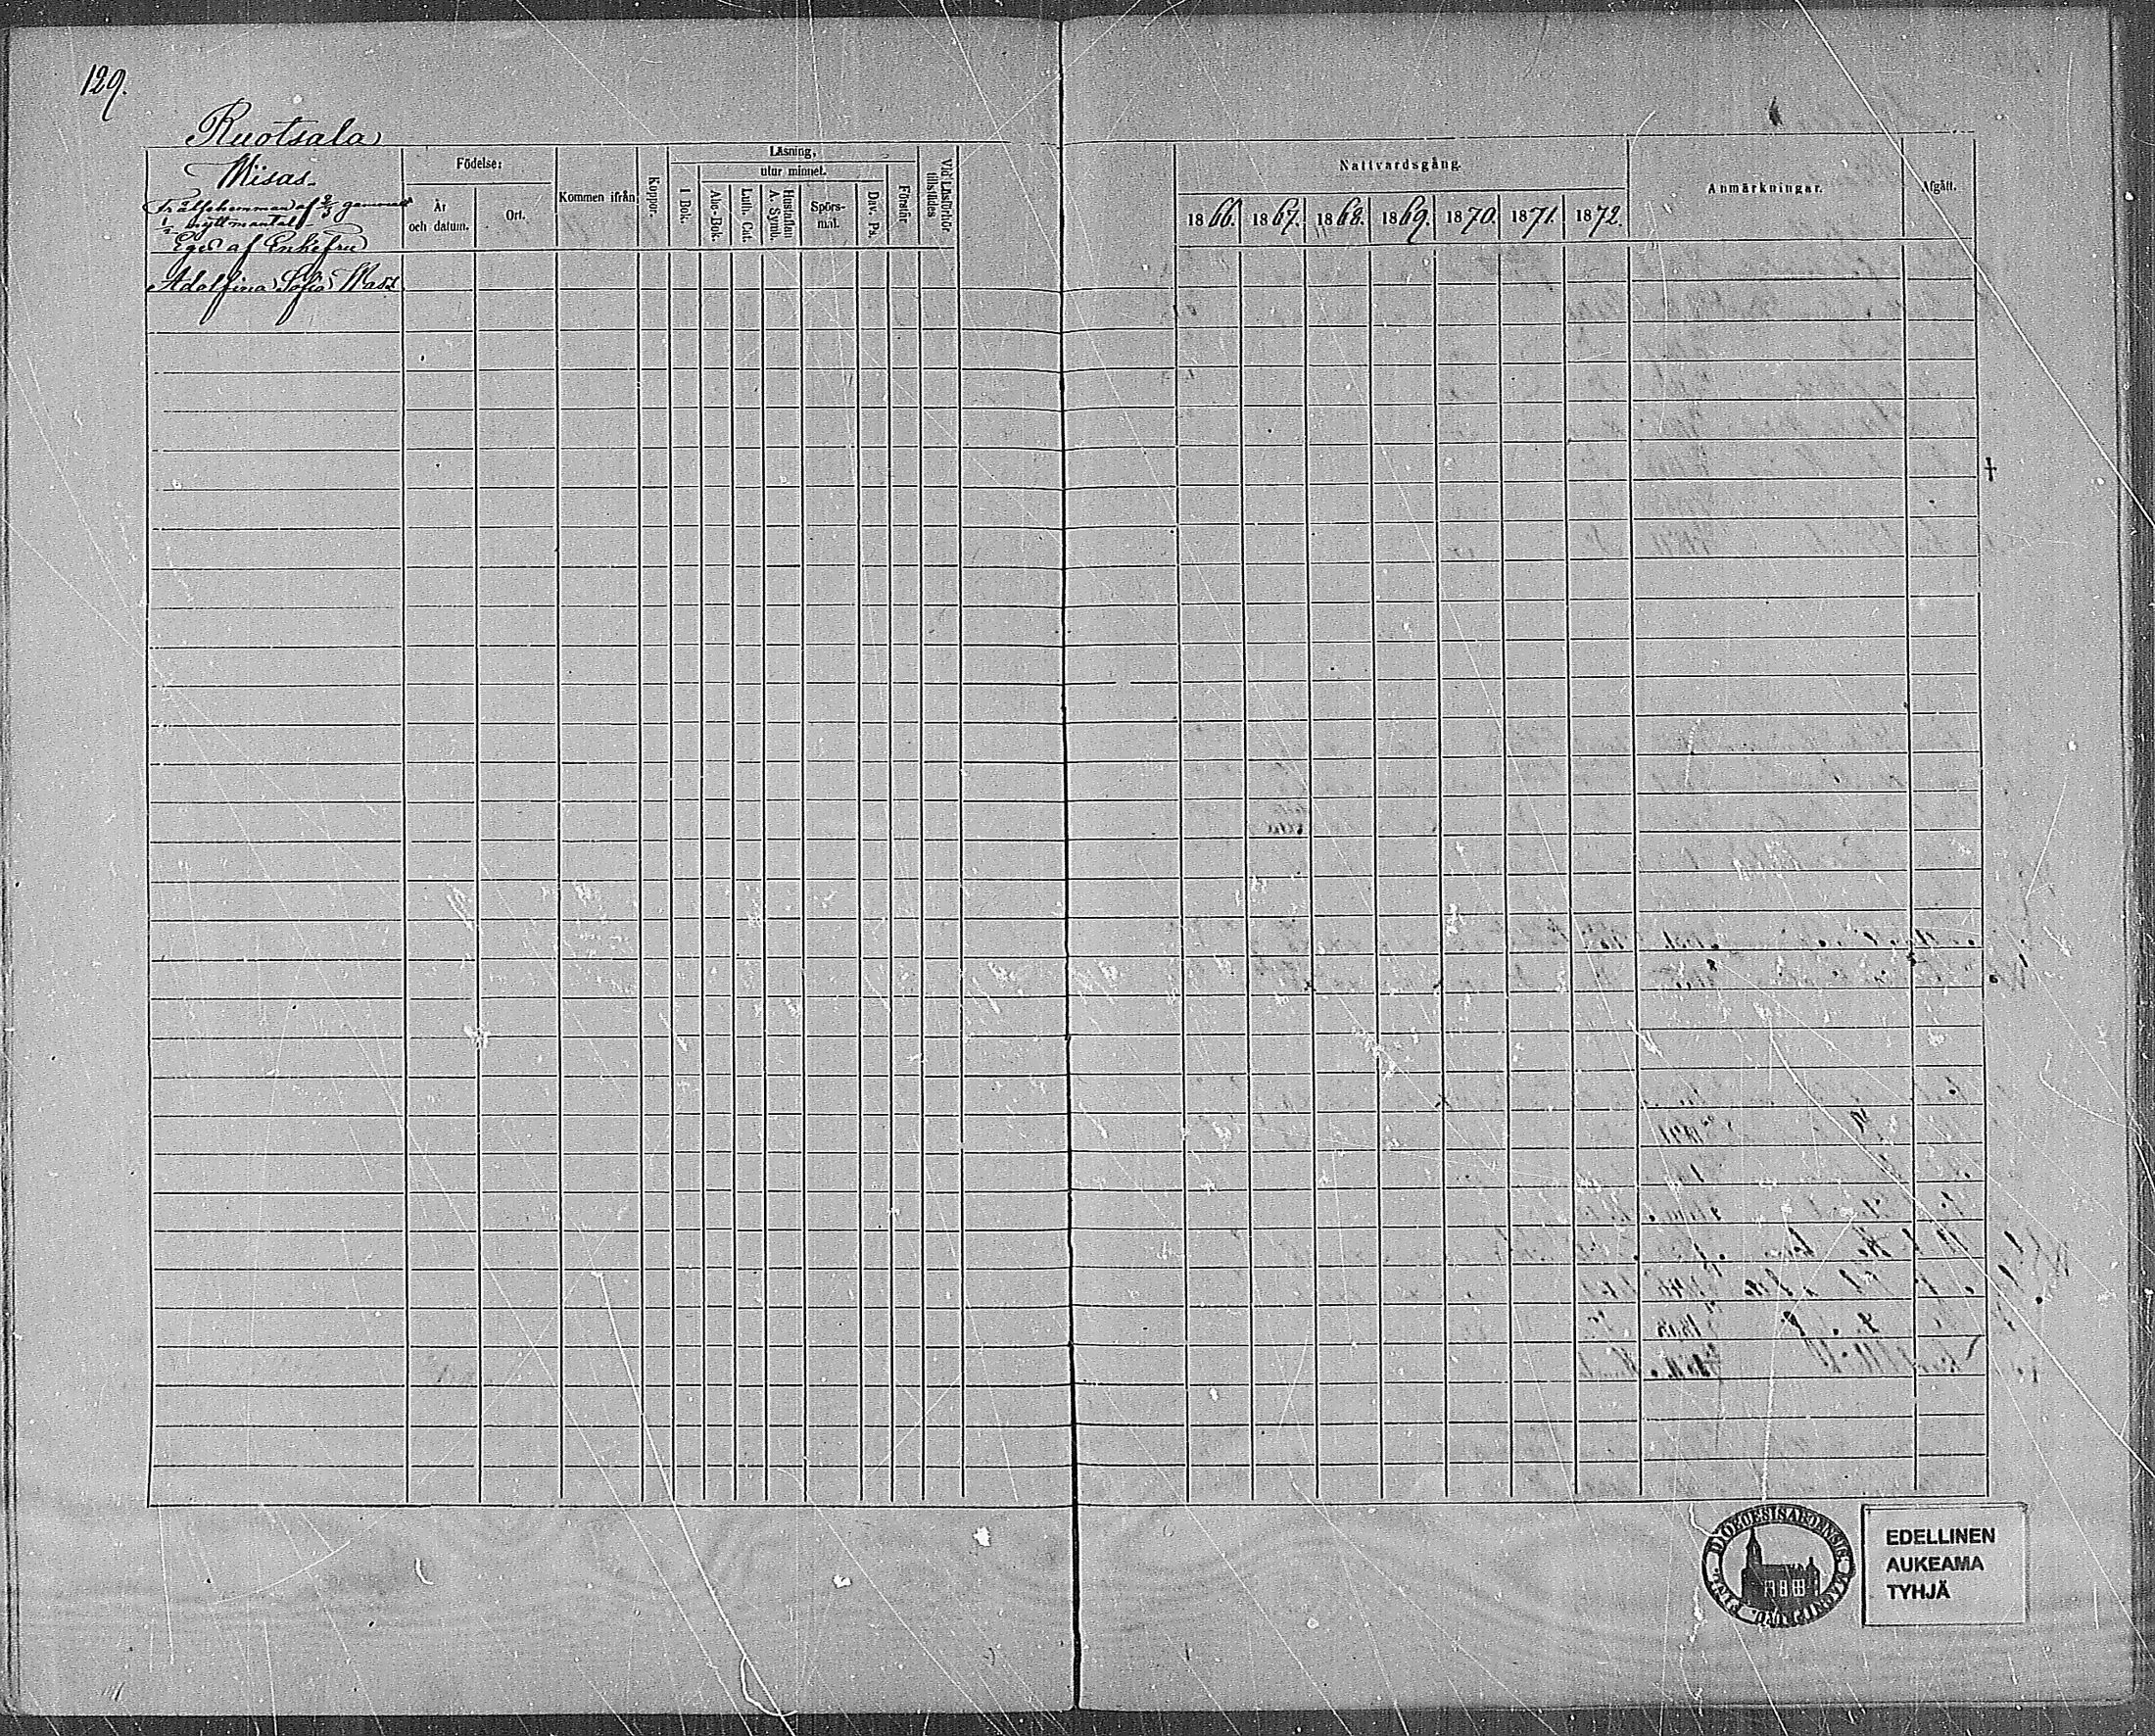 129.
Ruotsala
Misas.
Frälsehemman af 2/3 gammalt
1/2 nytt mantal.
Eges af Enkefru
Adolfina Sofia
Födelse:
År
och datum.
Ort.
Kommen ifrån
Koppor.
Läsning,
I Bok.
utur minnet.
Abc-Bok.
Luth. Cat.
Hustaflan
A. Symb.
Spörs-
mål.
Dav. Ps.
Förstår.
Vid Läsförhör
tillstädes
Nattvardsgång.
1866. 1867. 1868. 1869. 1870. 1871. 1872.
Anmärkningar.
Afgått.
EDELLINEN
AUKEAMA
TYHJÄ